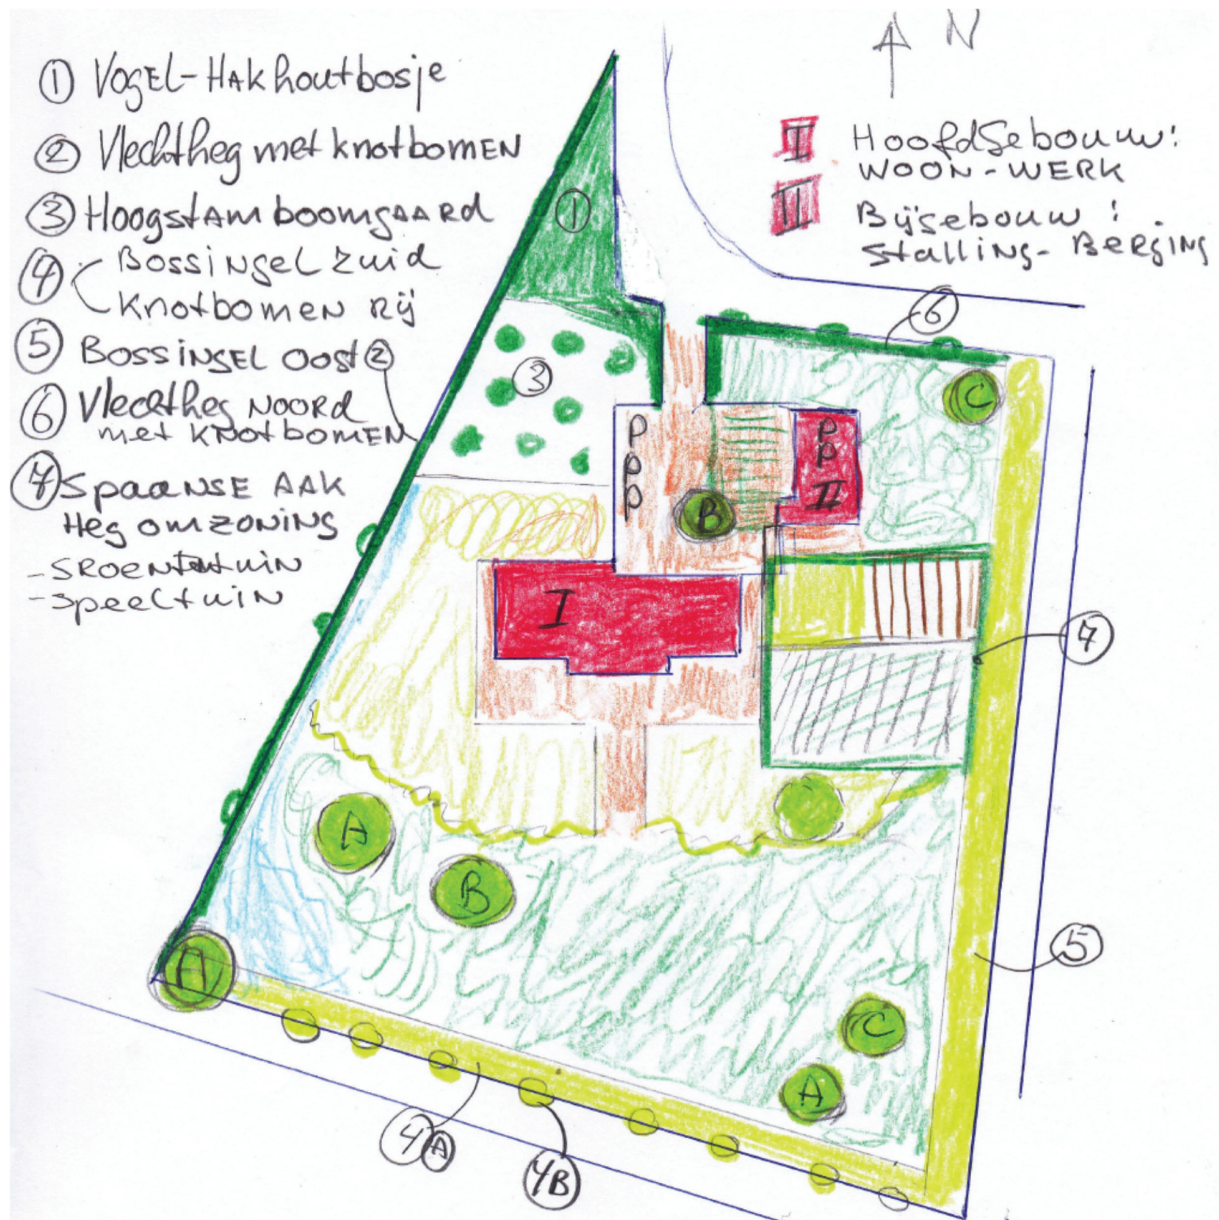 ① Vogel-Hakhoutbosje
② Vlechtheg met knotbomen
③ Hoogstamboomgaard
④ Bossingel zuid
knotbomen rij
⑤ Bossingel oost ②
⑥ Vlechtheg Noord
met knotbomen
⑦ Spaanse Aak
Heg omzoning
- groentetuin
- speeltuin
N
I Hoofdgebouw:
woon-werk
II Bijgebouw:
stalling-berging
①
⑥
③
C
P
P
P
P
P
II
B
I
⑦
A
B
⑤
A
C
A
4A
4B